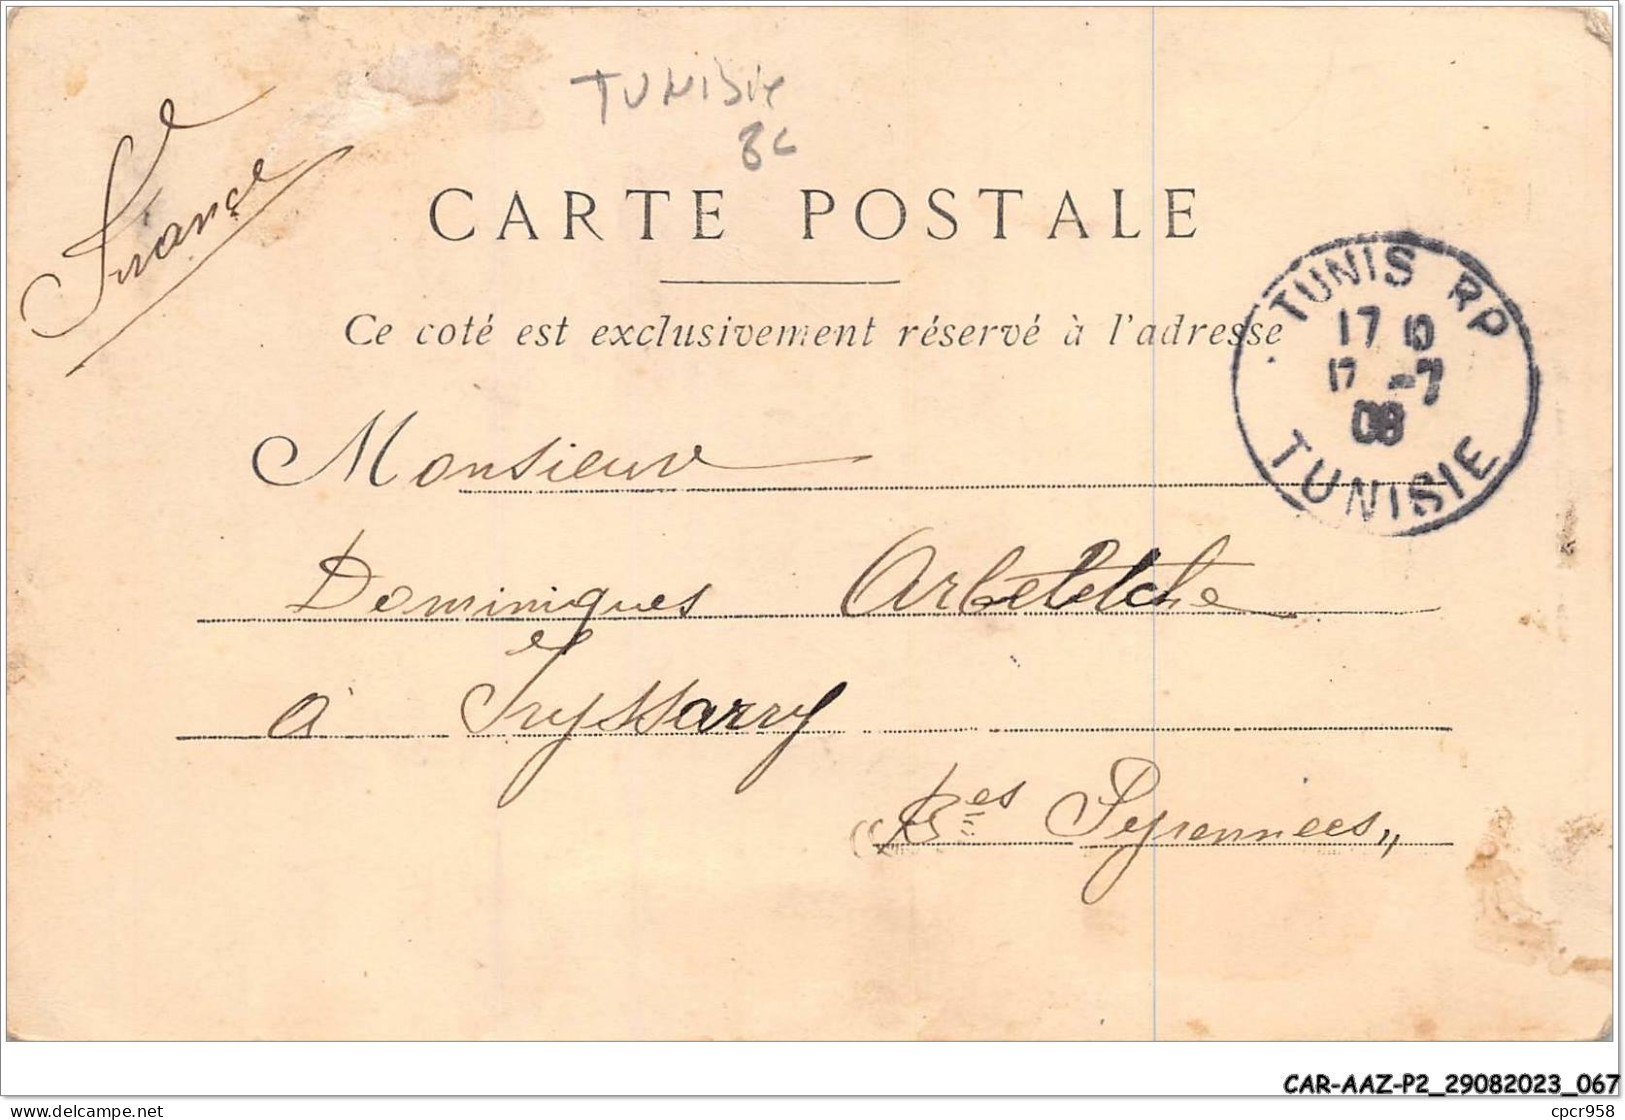 TUNISie
8c
France
CARTE POSTALE
Ce coté est exclusivement réservé à l'adresse
TUNIS RP
17 10
17 -7
08
TUNISIE
Monsieur
Dominiques Arbeletche
à Iryssarry
Bses Pyrennees,,
CAR-AAZ-P2_29082023_067
delcampe.net
cpcr958